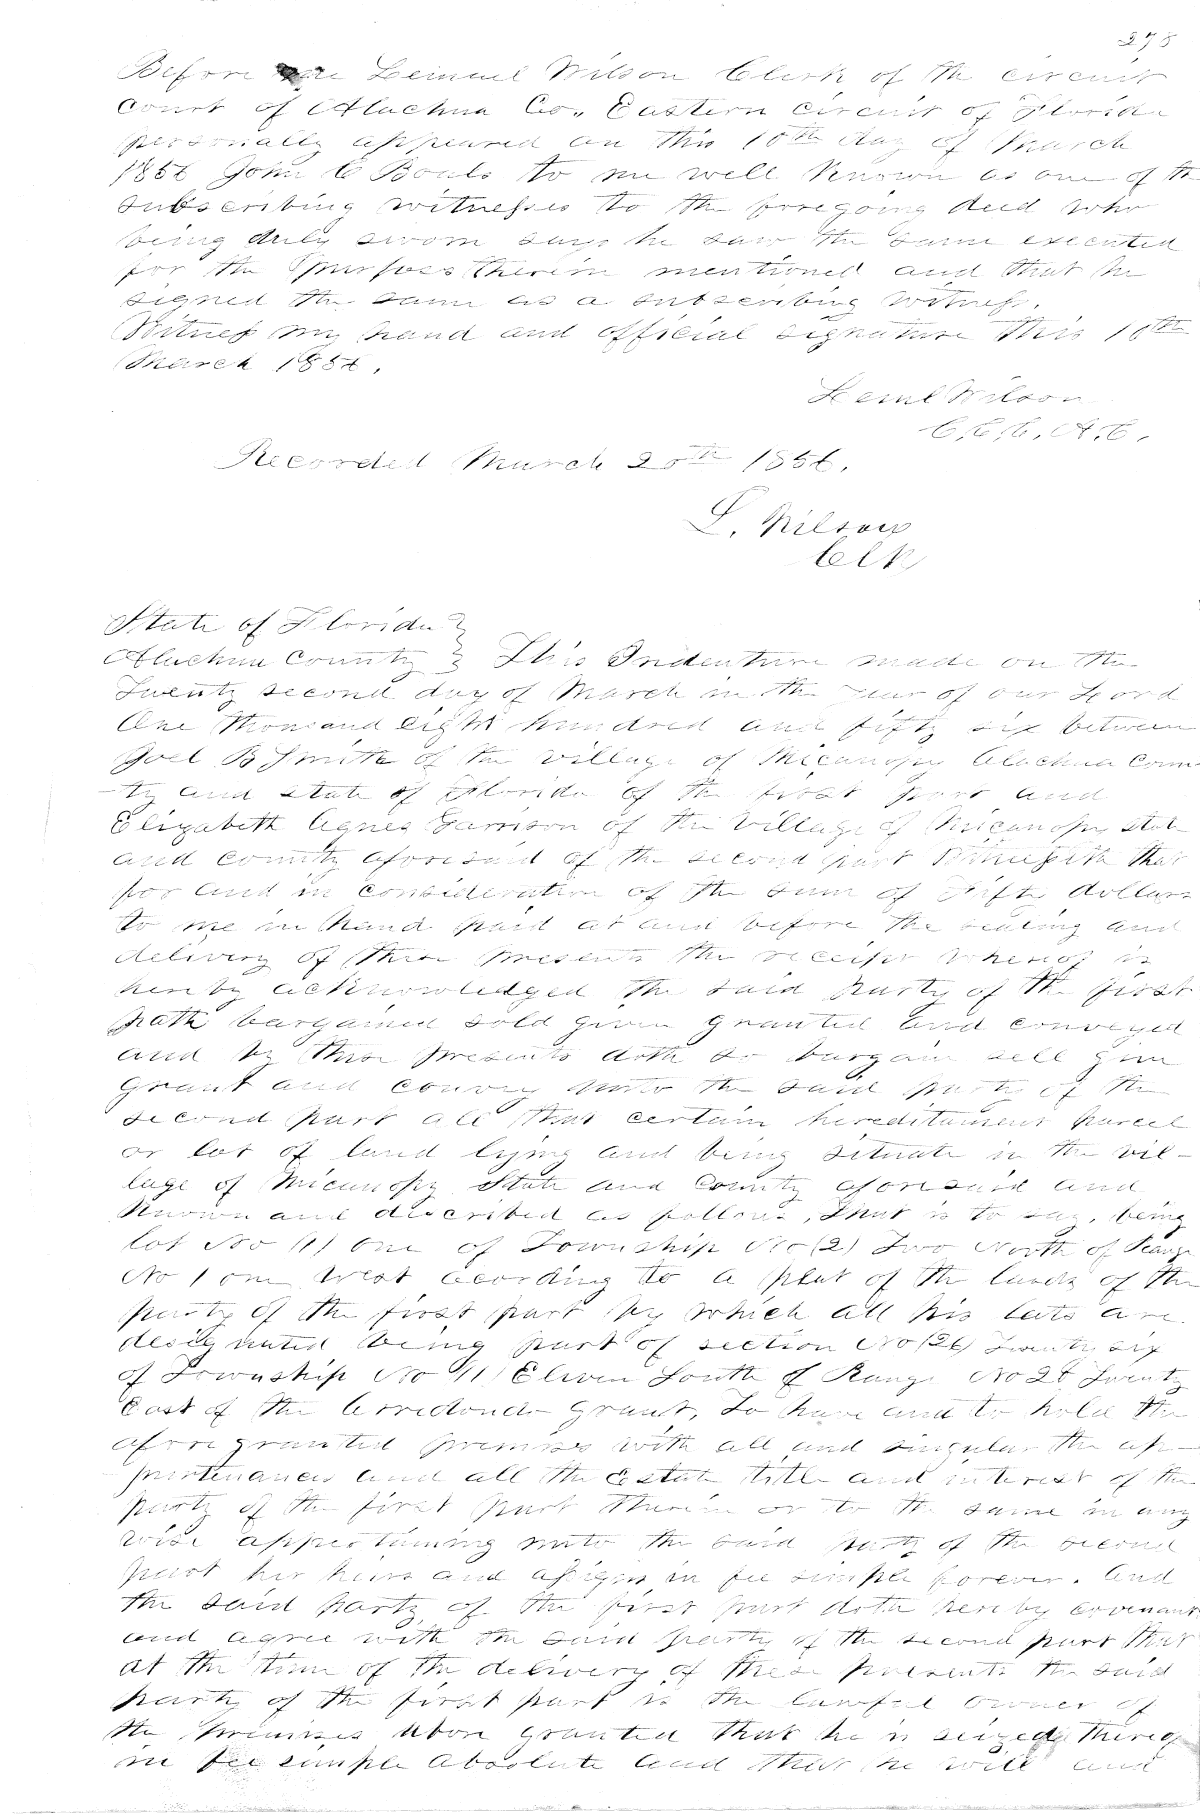 275
Before me Lemuel Wilson Clerk of the circuit
court of Alachua Co., Eastern circuit of Florida
personally appeared on this 10th day of March
1856 John C Bouls to me well known as one of the
subscribing witnesses to the foregoing deed who
being duly sworn says he saw the same executed
for the purposes therein mentioned and that he
signed the same as a subscribing witness.
Witness my hand and official signature this 10th
March 1856.
Leml Wilson
C.C.C. A.C.
Recorded March 20th 1856.
L. Wilson
Clk
State of Florida }
Alachua County } This Indenture made on the
Twenty second day of March in the year of our Lord
One thousand eight hundred and fifty six between
Joel B Smith of the village of Micanopy Alachua Coun-
-ty and state of Florida of the first part and
Elizabeth Agnes Garrison of the village of Micanopy state
and county aforesaid of the second part Witnesseth that
for and in consideration of the sum of Fifty dollars
to me in hand paid at and before the sealing and
delivery of these presents the receipt whereof is
hereby acknowledged the said party of the first
path bargained sold given granted and conveyed
and by these presents doth so bargain sell give
grant and convey unto the said party of the
second part all that certain hereditament parcel
or lot of land lying and being situate in the vil-
lage of Micanopy State and County aforesaid and
known and described as follows, That is to say, being
lot No (1) One of Township No (2) Two North of Range
No 1 one West acording to a plat of the lands of the
party of the first part by which all his lots are
designated being part of section No (26) Twenty six
of Township No 11) Eleven South of Range No 20 Twenty
East of the Arredondo grant, To have and to hold the
afore granted premises with all and singular the ap-
-purtenances and all the Estate title and interest of the
party of the first part therein or to the same in any
wise appertaining unto the said party of the second
part her heirs and assigns in fee simple forever. And
the said party of the first part doth hereby covenant
and agree with the said party of the second part that
at the time of the delivery of these presents the said
party of the first part is the lawful owner of
the premises above granted that he is seized thereof
in fee simple absolute and that he will and